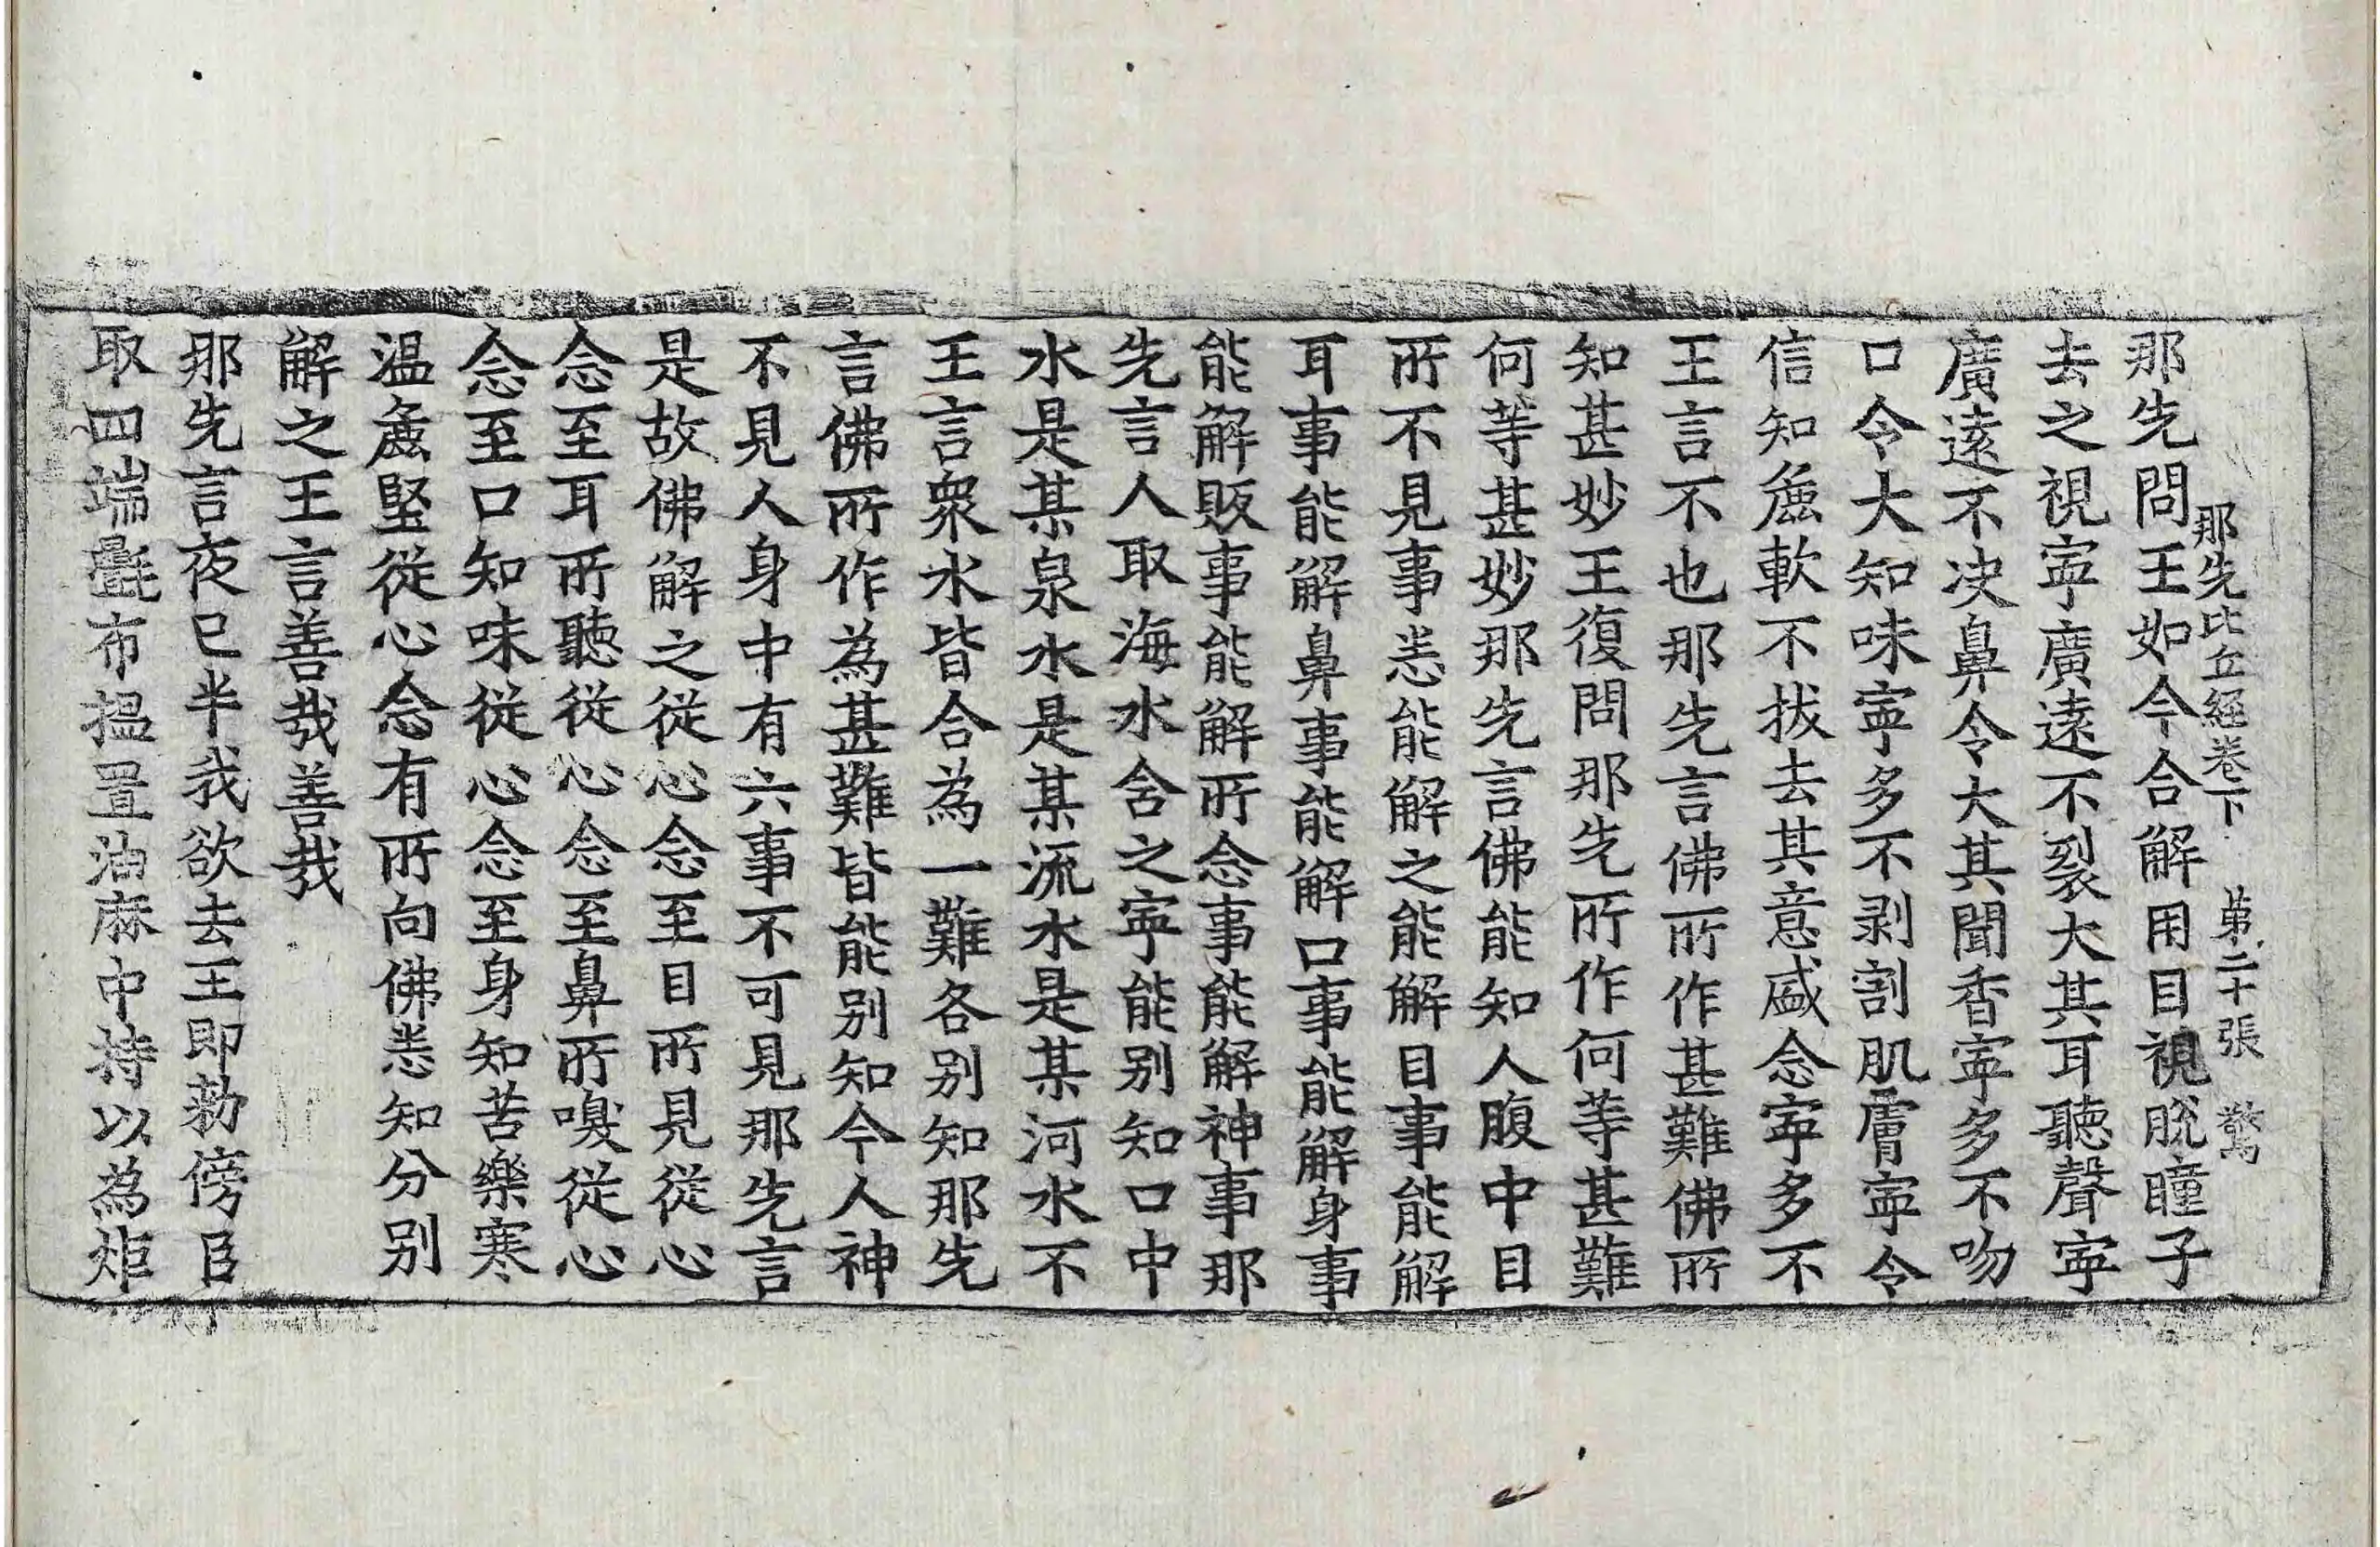 那先比丘經卷下 第二十張 驚
那先問王如今合解用目視脫瞳子
去之視寧廣遠不裂大其耳聽聲寧
廣遠不决鼻令大其聞香寧多不吻
口令大知味寧多不剥割肌膚寧令
信知麁軟不拔去其意盛念寧多不
王言不也那先言佛所作甚難佛所
知甚妙王復問那先所作何等甚難
何等甚妙那先言佛能知人腹中目
所不見事悉能解之能解目事能解
耳事能解鼻事能解口事能解身事
能解販事能解所念事能解神事那
先言人取海水含之寧能别知口中
水是某泉水是某流水是某河水不
王言衆水皆合為一難各别知那先
言佛所作為甚難皆能别知今人神
不見人身中有六事不可見那先言
是故佛解之從心念至目所見從心
念至耳所聽從心念至鼻所嗅從心
念至口知味從心念至身知苦樂寒
温麁堅從心念有所向佛悉知分别
解之王言善哉善哉
那先言夜已半我欲去王即勑傍臣
取四端氎布搵置油麻中持以為炬